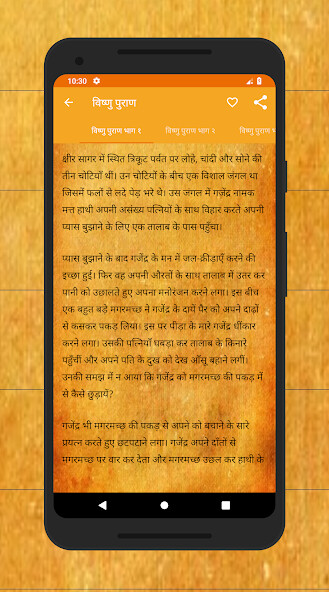 10:30
विष्णु पुराण
विष्णु पुराण भाग १ विष्णु पुराण भाग २ विष्णु पुराण भ
क्षीर सागर में स्थित त्रिकूट पर्वत पर लोहे, चांदी और सोने की
तीन चोटियाँ थीं। उन चोटियों के बीच एक विशाल जंगल था
जिसमें फलों से लदे पेड़ भरे थे। उस जंगल में गजेंद्र नामक
मत्त हाथी अपनी असंख्य पत्नियों के साथ विहार करते अपनी
प्यास बुझाने के लिए एक तालाब के पास पहुँचा।
प्यास बुझाने के बाद गजेंद्र के मन में जल-क्रीड़ाएँ करने की
इच्छा हुई। फिर वह अपनी औरतों के साथ तालाब में उतर कर
पानी को उछालते हुए अपना मनोरंजन करने लगा। इस बीच
एक बहुत बड़े मगरमच्छ ने गजेंद्र के दायें पैर को अपने दाढ़ों
से कसकर पकड़ लिया। इस पर पीड़ा के मारे गजेंद्र धींकार
करने लगा। उसकी पत्नियाँ घबड़ा कर तालाब के किनारे
पहुँचीं और अपने पति के दुख को देख आँसू बहाने लगीं।
उनकी समझ में न आया कि गजेंद्र को मगरमच्छ की पकड़ में
से कैसे छुड़ायें?
गजेंद्र भी मगरमच्छ की पकड़ से अपने को बचाने के सारे
प्रयत्न करते हुए छटपटाने लगा। गजेंद्र अपने दाँतों से
मगरमच्छ पर वार कर देता और मगरमच्छ उछल कर हाथी के